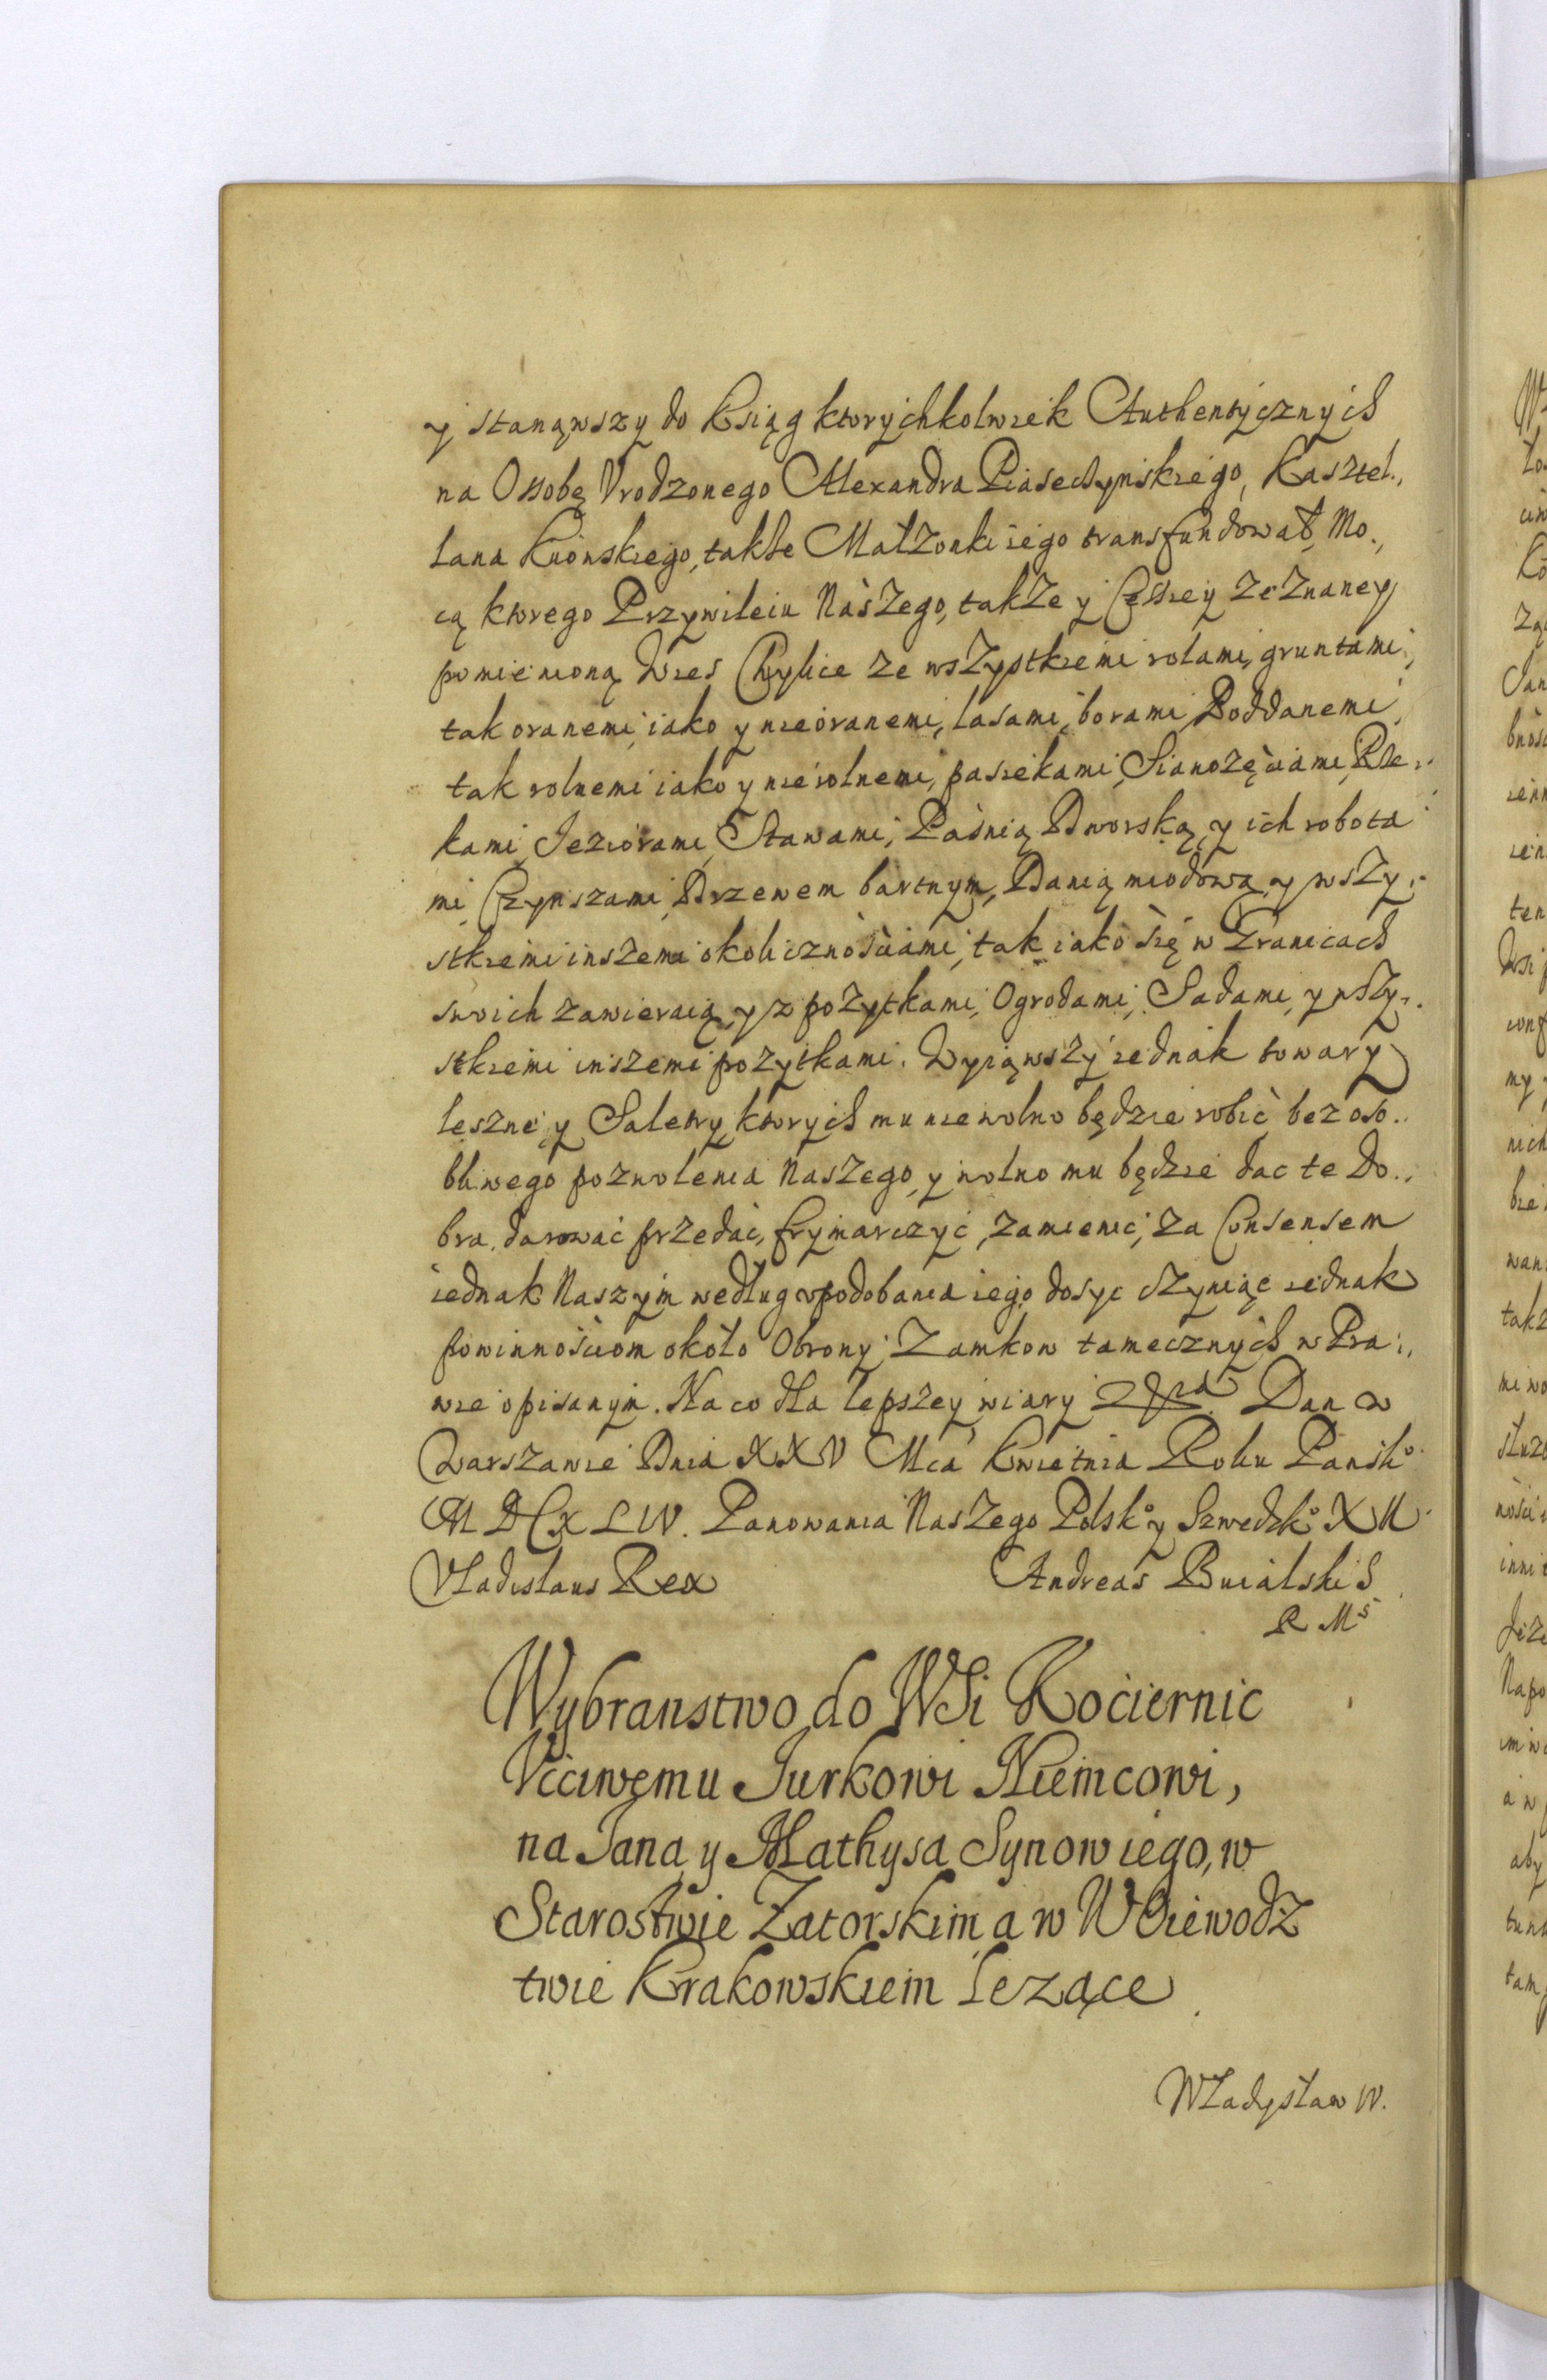 y stanąwszy do Ksiąg ktorychkolwiek Authentycznych
na Osobę Vrodzonego Alexandra Piaseczynskiego, Kasztel.,
lana Kiiowskiego, także Małżonki iego transfundował, Mo.,
cą ktorego Przywileiu Naszego, także y Cessiey zeznaney
pomienioną Wies Chylice ze wszystkiemi rolami, gruntami,
tak oranemi, iako y nieoranemi, lasami, borami, Poddanemi,
tak rolnemi iako y nierolnemi, pasiekami, Sianożęciami, Rze.,
kami, Jeziorami, Stawami, Paśnią Dworską, y ich robota
mi, Czynszami, Drzewem bartnym, Danią miodową, y wszy.,
stkiemi inszemi okolicznościami, tak iako się w Granicach
swoich zawieraią, y z pożytkami, Ogrodami, Sadami, y wszy.,
stkiemi inszemi pożytkami. Wyiąwszy iednak towary
leszne, y Saletry, ktorych mu nie wolno będzie robić bez oso..
bliwego pozwolenia Naszego, y wolno mu będzie dac te Do..
bra, darować przedać, frymarczyć, zamienić, za Consensem
iednak Naszym według vpodobania iego dosyc czyniąc iednak
powinnościom około Obrony Zamkow tamecznych w Pra.,
wie opisanym. Na co dla lepszey wiary Dan w
Warszawie Dnia XXV Mca Kwietnia Roku Pańsko
MDCXLIV. Panowania Naszego Polsko y Szwedzko XII
Vladislaus Rex Andreas Buialski S
R Ms
Wybranstwo do WSi Kociernic
Vcciwemu Jurkowi Niemcowi,
na Jana, y Mathysa Synow iego, w
Starostwie Zatorskim, a w WOiewodz
twie Krakowskiem leżące
Władysław IV.